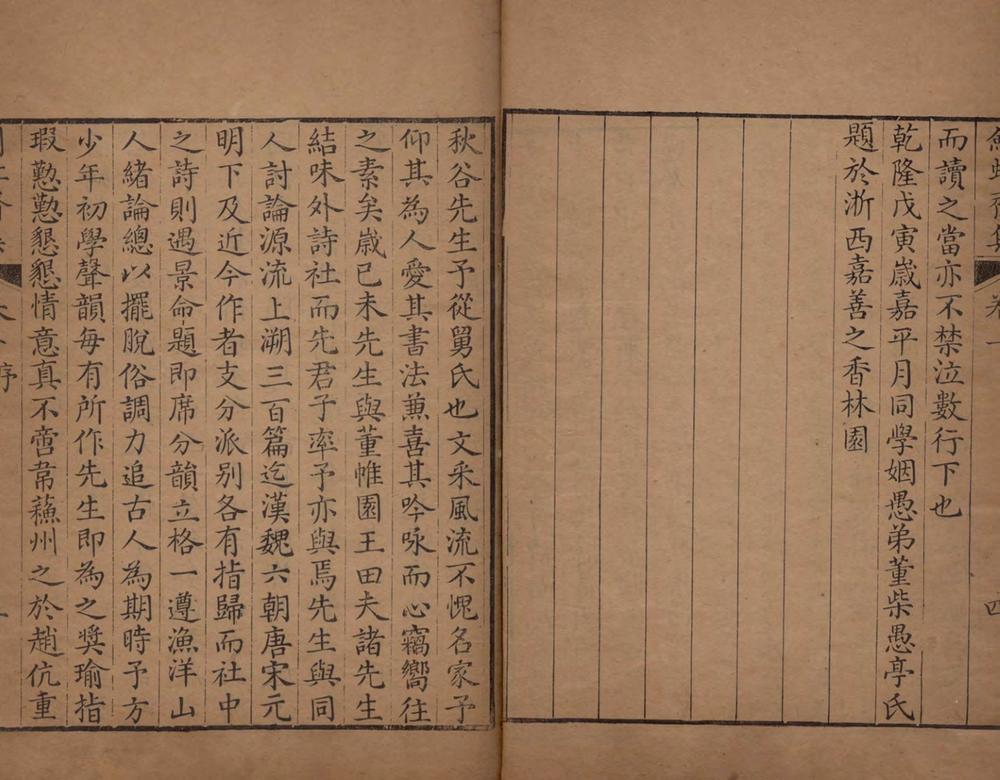 卷一
四
而讀之當亦不禁泣數行下也
乾隆戊寅歲嘉平月同學姻愚弟董柴愚亭氏
題於浙西嘉善之香林園
秋谷先生予從舅氏也文采風流不愧名家予
仰其為人愛其書法兼喜其吟咏而心竊嚮往
之素矣歲己未先生與董帷園王田夫諸先生
結味外詩社而先君子率予亦與焉先生與同
人討論源流上溯三百篇迄漢魏六朝唐宋元
明下及近今作者支分派别各有指歸而社中
之詩則遇景命題即席分韻立格一遵漁洋山
人緒論總以擺脫俗調力追古人為期時予方
少年初學聲韻每有所作先生即為之奬瑜指
瑕懃懃懇懇情意真不啻常蘓州之於趙伉重
序